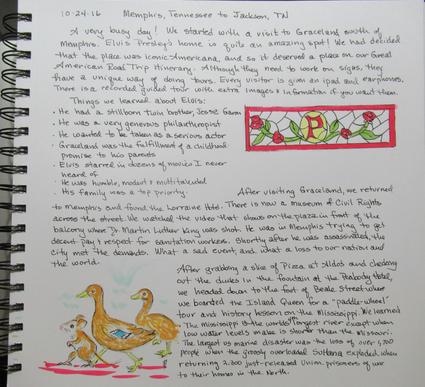 10-24-16 Memphis, Tennessee to Jackson, TN
A very busy day! We started with a visit to Graceland, south of
Memphis. Elvis Presley's home is quite an amazing spot! We had decided
that the place was iconic Americana, and so it deserved a place on our Great
American Road Trip Itinerary. Although they need to work on signs, they
have a unique way of doing tours. Every visitor is given an ipad and earphones.
There is a recorded guided tour with extra images & information if you want them.
Things we learned about Elvis:
• He had a stillborn twin brother, Jesse Garon
• He was a very generous philanthropist
• He wanted to be taken as a serious actor
• Graceland was the fulfillment of a childhood
promise to his parents
• Elvis starred in dozens of movies I never
heard of
• He was humble, modest & multi talented
• His family was a top priority.
P
After visiting Graceland, we returned
to Memphis and found the Lorraine Hotel. There is now a museum of Civil Rights
across the street. We watched the video that shows on the plaza in front of the
balcony where Dr. Martin Luther King was shot. He was in Memphis trying to get
decent pay & respect for sanitation workers. Shortly after he was assassinated, the
city met the demands. What a sad event, and what a loss to our nation and
the world.
After grabbing a slice of Pizza at Aldos and checking
out the ducks in the fountain at the Peabody Hotel,
we headed down to the foot of Beale Street where
we boarded the Island Queen for a "paddle-wheel"
tour and history lesson on the Mississippi. We learned
The Mississippi is the worlds longest river except when
low water levels make it shorter than the Missouri.
The largest US marine disaster was the loss of over 1,500
people when the grossly overloaded Sultana exploded when
returning 2,300 just-released Union prisoners of war
to their homes in the North.